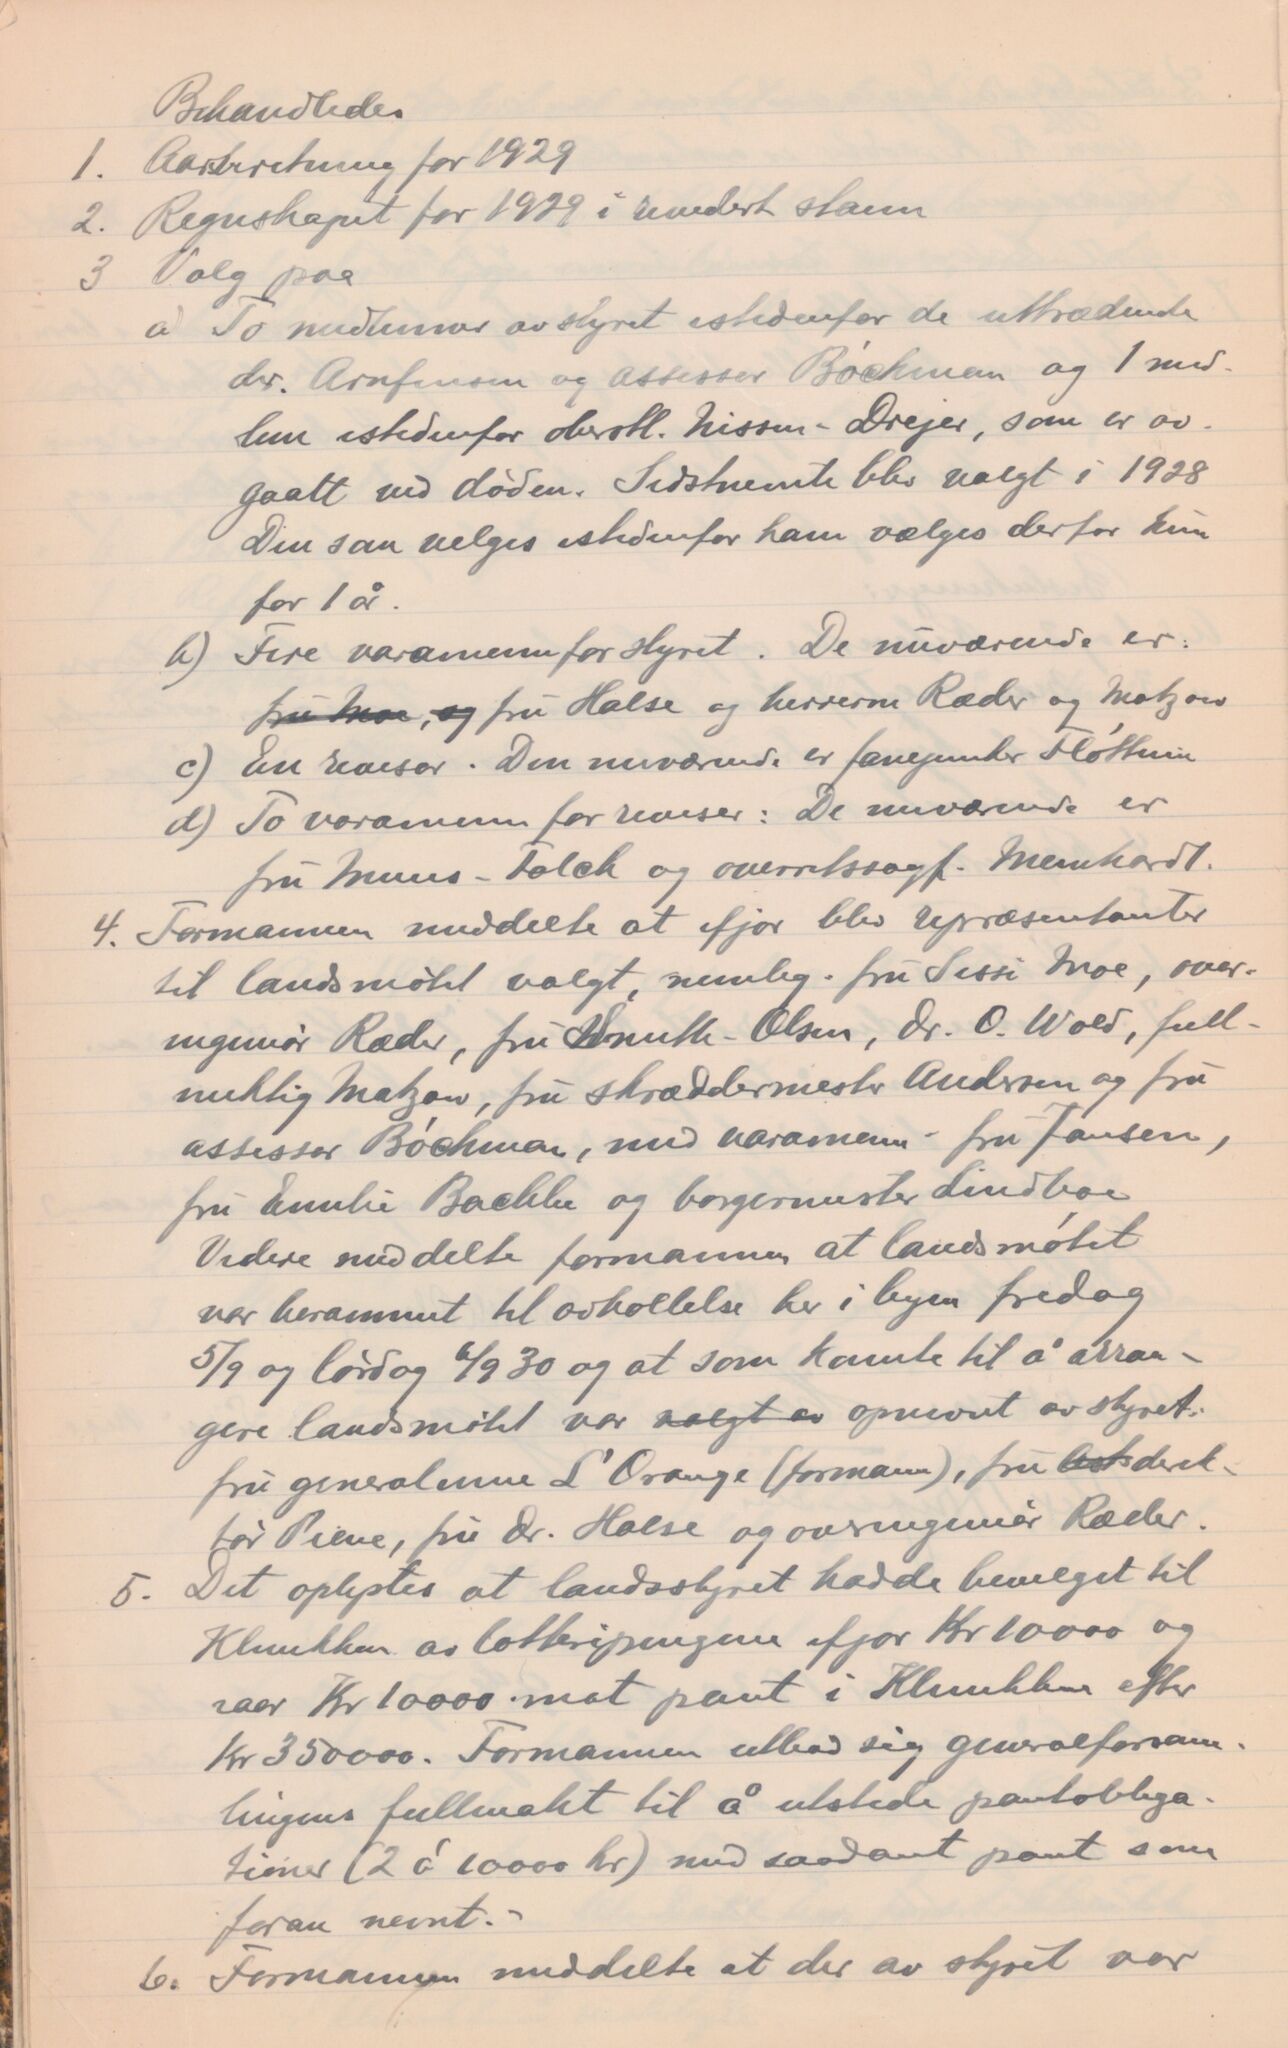 Behandledes
1. Aarsberetning for 1929
2. Regnskapet for 1929 i revidert stann
3 Valg paa
a To medlemmer av styret istedenfor de uttrædende
dr. Arnfinsen og assessor Böckman og 1 med-
lem istedenfor oberstl. Nissen-Drejer, som er av-
gaatt ved döden. Sidstnemte blev valgt i 1928
Den som velges istedenfor ham vælges derfor kun
for 1 år.
b) Fire varamenn for styret. De nuværende er:
fru Moe, og fru Halse og herrerne Ræder og Matzow
c) En revisor. Den nuværende er fanejunker Flöttum
d) To varamenn for revisor: De nuværende er
fru Muus-Falck og overretssagf. Meinhardt.
4. Formannen meddelte at ifjor blev repræsentanter
til landsmötet valgt, nemlig. fru Sissi Moe, over-
ingeniör Ræder, fru Knuth-Olsen, dr. O. Wold, full-
mektig Matzow, fru skræddermester Andersen og fru
assessor Böckman, med varamenn fru Jansen,
fru Emilie Bachke og borgermester Lindboe
Videre meddelte formannen at landsmötet
var berammet til avholdelse her i byen fredag
5/9 og lördag 6/9 30 og at som komite til å arran-
gere landsmötet var valgt av opnevnt av styret:
fru generalinne L'Orange (formann), fru direk-
tör Piene, fru dr. Halse og overingeniör Ræder.
5. Det oplystes at landsstyret hadde bevilget til
Klinikken av lotteripengene ifjor Kr 10000 og
iaar Kr 10000 mot pant i Klinikken efter
Kr 350000. Formannen utbad sig generalforsam-
lingens fullmakt til å utstede pantobliga-
tioner (2 á 10000 kr) med saadant pant som
foran nevnt.-
6. Formannen meddelte at der av styret var